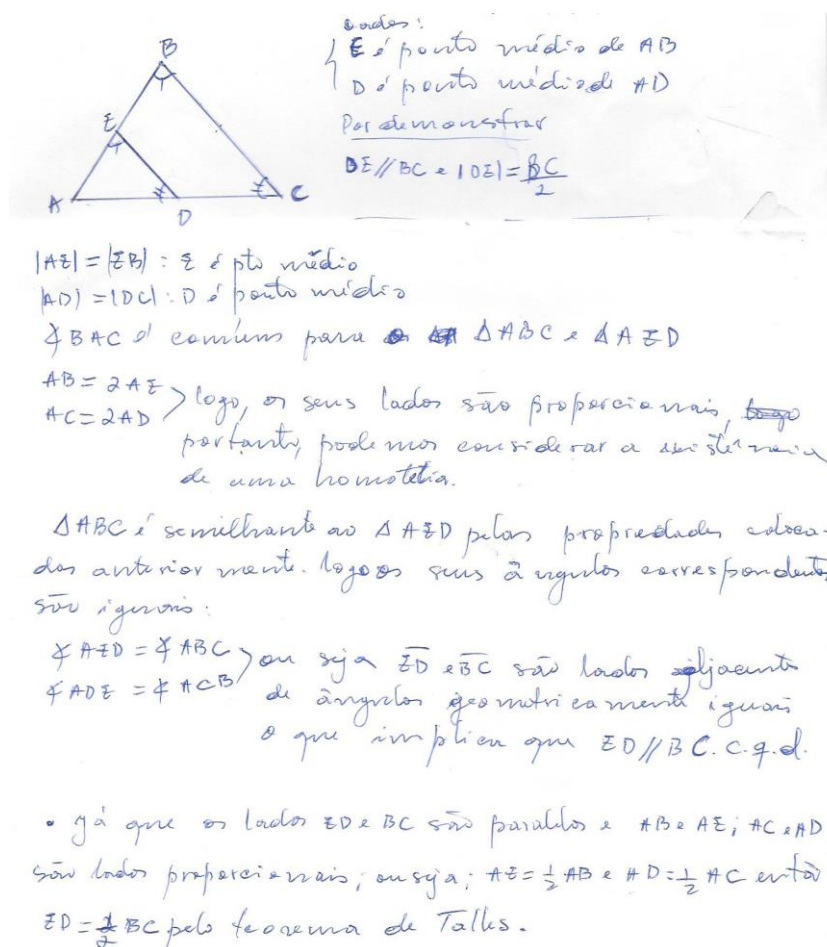 Dados:
E é ponto médio de AB
D é ponto médio de AD
Por demonstrar
DE // BC e |DE| = BC/2
B
E
A
D
C
|AE| = |EB| : E é pto médio
|AD| = |DC| : D é ponto médio
∢BAC é comum para o ΔABC e ΔAED
AB = 2AE
AC = 2AD
logo, os seus lados são proporcionais,
portanto, podemos considerar a existência
de uma homotetia.
ΔABC é semelhante ao ΔAED pelas propriedades coloca-
das anteriormente. logo os seus ângulos correspondentes
são iguais:
∢AED = ∢ABC
∢ADE = ∢ACB
ou seja ED e BC são lados adjacente
de ângulos geometricamente iguais
o que implica que ED // BC. c.q.d.
• Já que os lados ED e BC são paralelos e AB e AE; AC e AD
são lados proporcionais; ou seja; AE = 1/2 AB e AD = 1/2 AC então
ED = 1/2 BC pelo teorema de Talles.